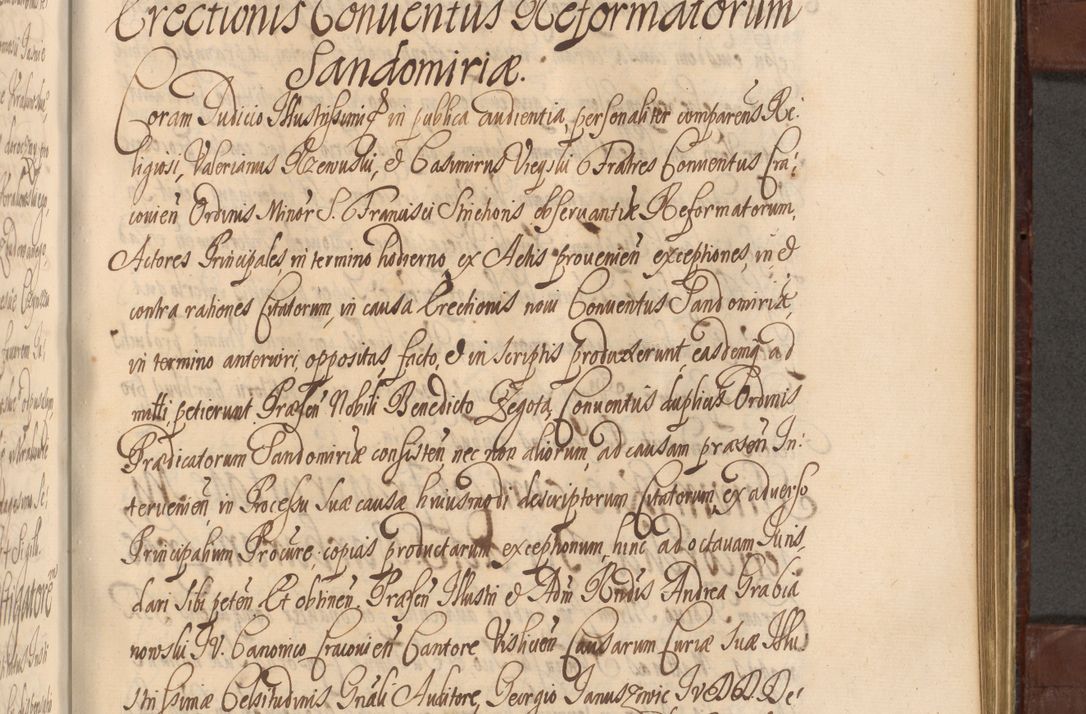 Erectionis Conventus Reformatorum
Sandomiriæ.
Coram Judicio Illustrissimi in publica audientia, personaliter comparens Re-
ligiosi, Valerianus Rzewuski, & Casimirus Fratres Conventus Cra-
covien Ordinis Minor S. Francisci Strictioris observantiæ Reformatorum,
Actores Principales in termino hodierno ex Actis provenien exceptiones, in &
contra rationes Citatorum, in causa Erectionis novi Conventus Sandomiriæ,
in termino anteriori oppositas, facto, & in scriptis produxerunt, easdemq ad
mitti petierunt. Præsen Nobili Benedicto Zegota, Conventus duplicis Ordinis
Prædicatorum Sandomiriæ consisten, nec non aliorum, ad causam præsen In-
tervenien, in Processu suæ causæ huiusmodi descriptorum Citatorum, ex adverso
Principalium Procure, copias productarum exceptionum, hinc ad octavam Juris,
dari sibi peten. Et obtinen. Præsen Illustri & Adm Rndis Andrea Grabia
nowski I.V. Canonico Cracovien Cantore Vislicien Causarum Curiæ Suæ Illu
strissimæ Celsitudinis Gnali Auditore, Georgio Januszowic I.V.D.D. De-